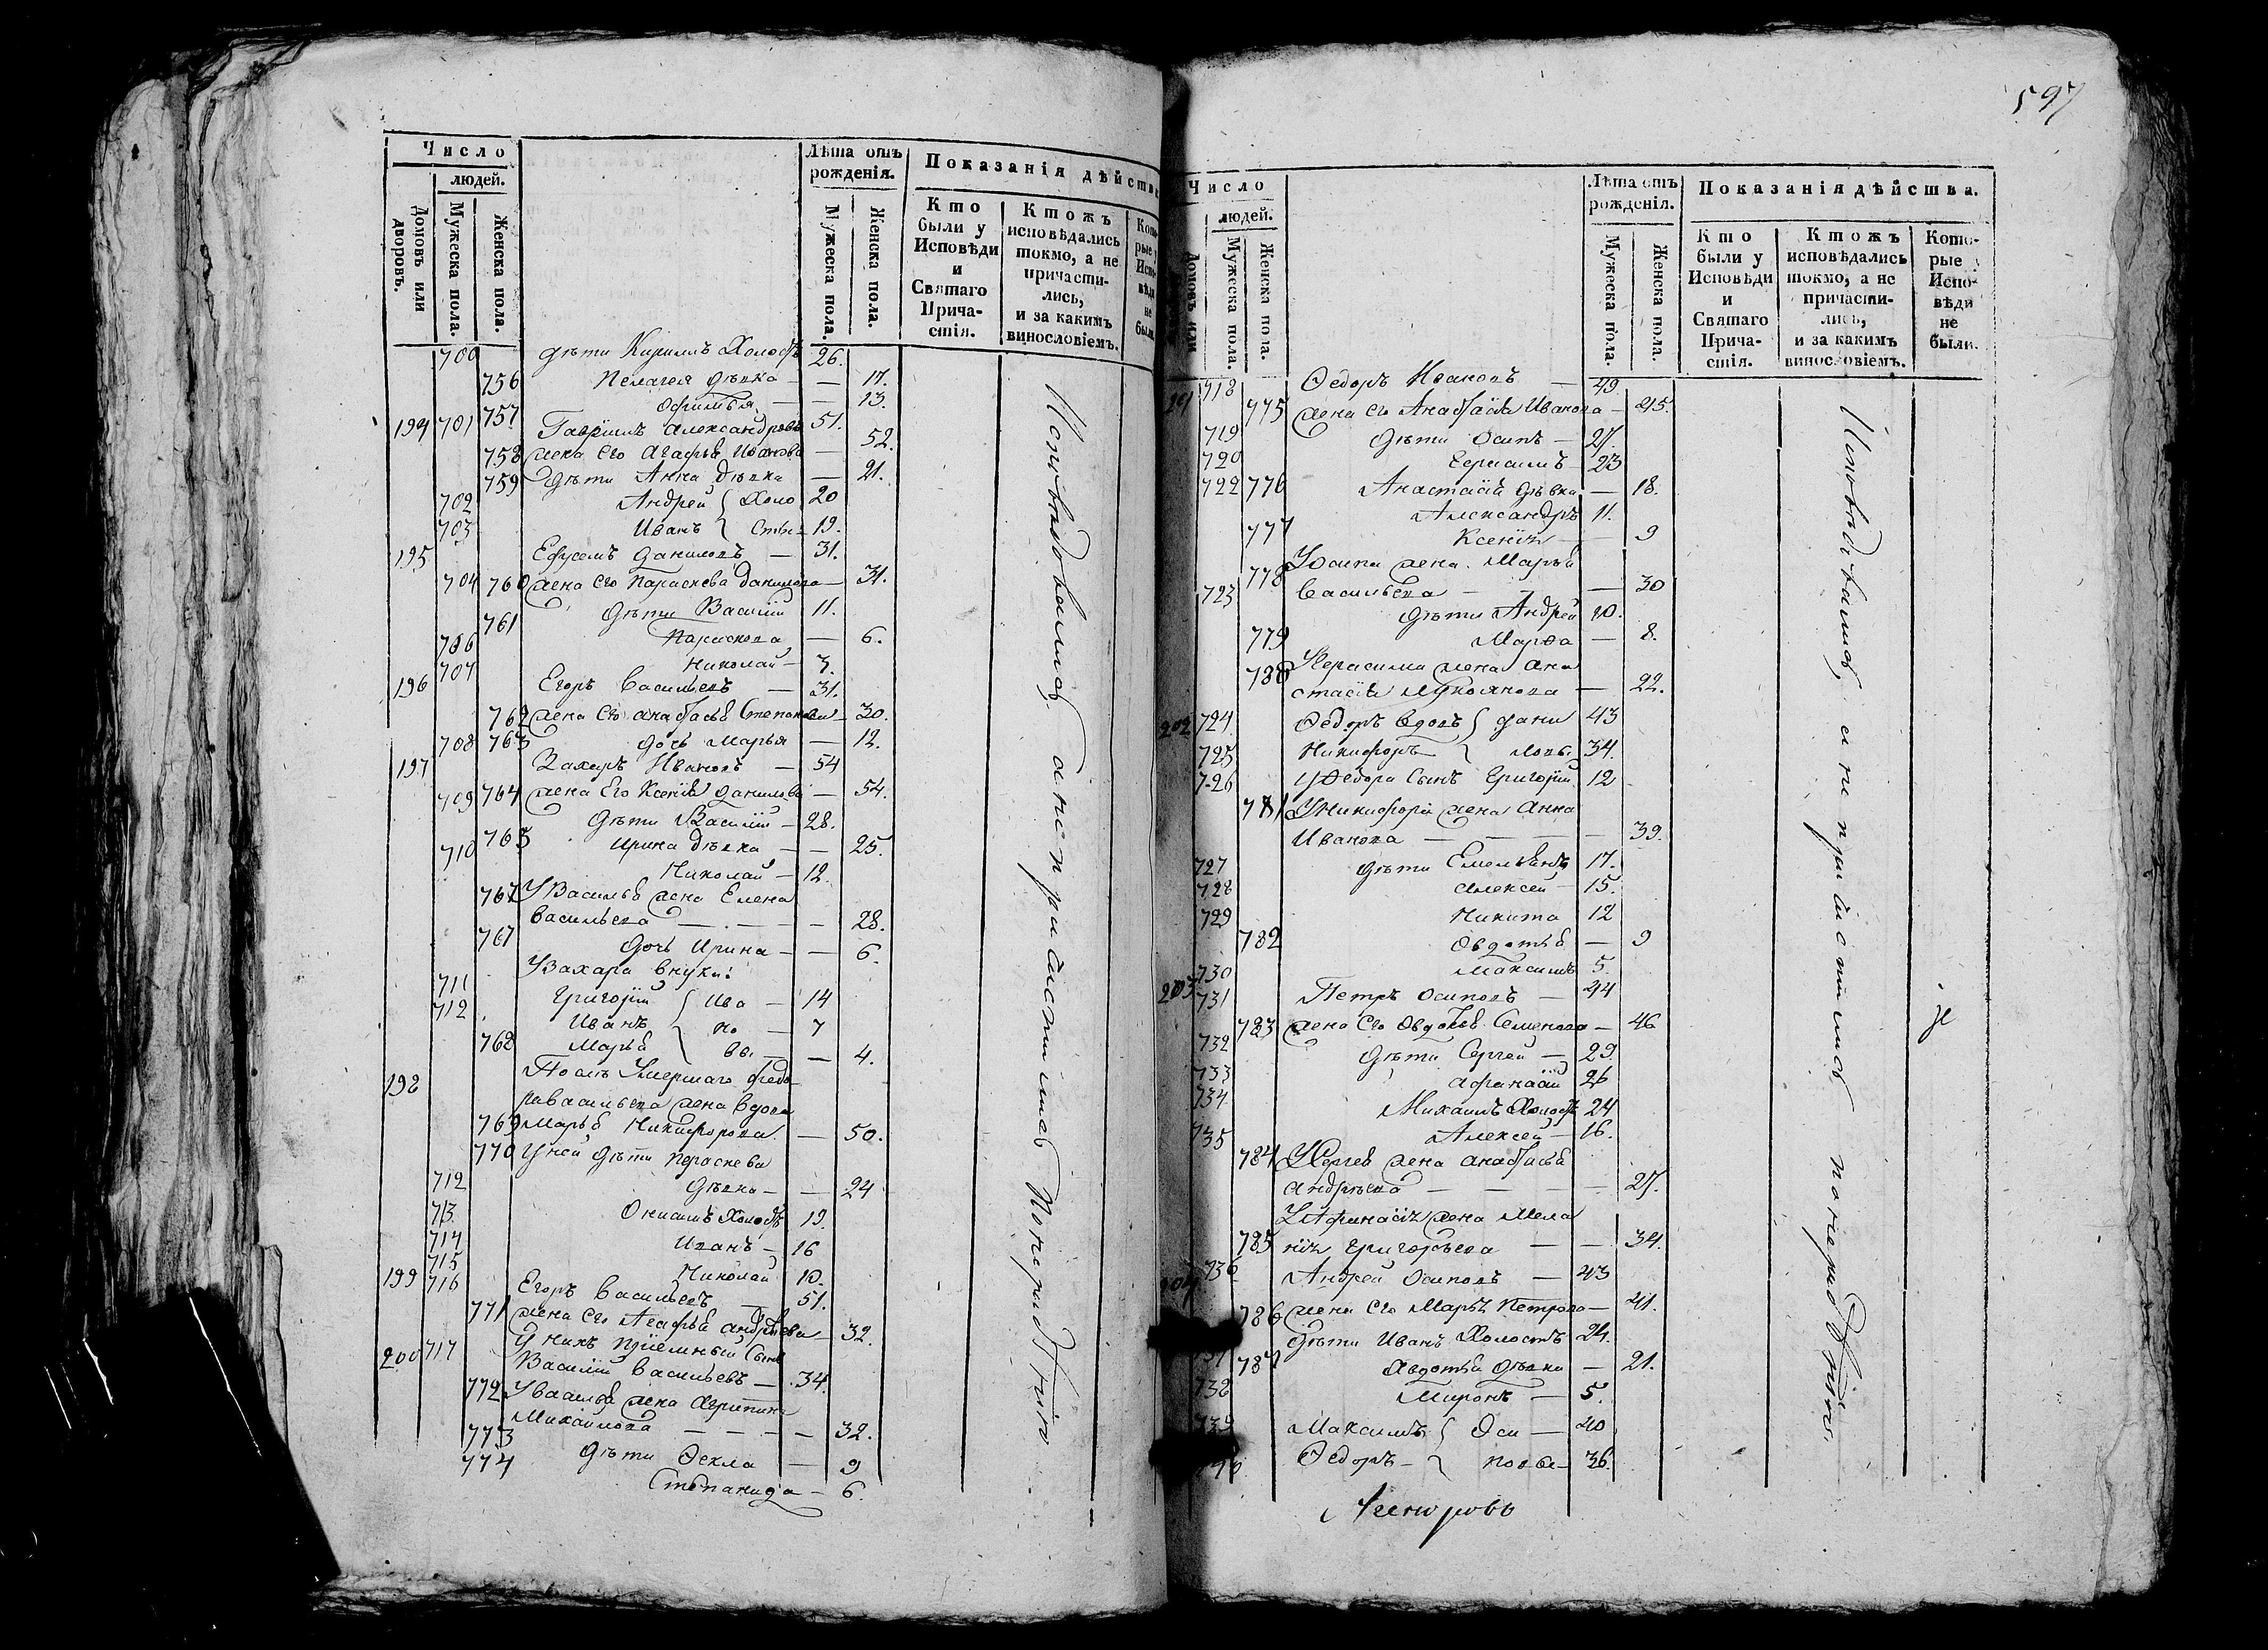 597
Число
людей.
Домовъ или дворовъ.
Мужеска пола.
Женска пола.
Лѣта отъ рожденія.
Мужеска пола.
Женска пола.
Показанія дѣйства
Кто были у Исповѣди и Святаго Причастія.
Ктожъ исповѣдались токмо, а не причастились, и за какимъ винословіемъ.
Которые у Исповѣди не были.
700 дѣти Кириллъ Холостъ 26.
756 Пелагея дѣвка — — 17.
757 Офимья — — 13.
194 701 Гавріилъ Александровъ 51.
758 жена его Агафья Иванова — 52.
759 дѣти Анна дѣвка — 21.
702 Андрей Холо 20
703 Иванъ сты 19.
195 Ефремъ Даниловъ — 31.
704 760 жена его Параскева Данилова — 31.
дѣти Василій 11.
761 Параскева — 6.
706 Николай — 3.
196 707 Егоръ Васильевъ — 31.
762 жена его Анастасья Степанова — 30.
708 763 дочь Марья — 12.
197 Захаръ Ивановъ — 54
709 764 жена Его Ксенія Данилова — 54.
дѣти Василій — 28.
710 765 Ирина дѣвка — — 25.
Николай — 12.
767 У Василья жена Елена
Васильева — — — 28.
767 дочь Ирина — — 6.
У Захара внуки:
711 Григорій Ива — 14
712 Иванъ но — 7
768 Марья вы — — 4.
198 Послѣ Умершаго Федо
ра Васильева жена вдова
769 Марья Никифорова. — 50.
770 У ней дѣти Параскева
712 дѣвка — — 24
713 Онисимъ Холостъ 19.
714 Иванъ — 16
715 Николай 10.
199 716 Егоръ Васильевъ — 51.
771 жена его Агафья Андреева — 32.
У нихъ пріемный сынъ
200 717 Василій Васильевъ — 34.
772 У Василья жена Агрипина
773 Михайлова — — — — 32.
774 дѣти Фекла — 9
Степанида — 6.
Исповѣдовались а не причастились
Число
людей.
Домовъ или
Мужеска пола.
Женска пола.
Лѣта отъ рожденія.
Мужеска пола.
Женска пола.
Показанія дѣйства.
Кто были у Исповѣди и Святаго Причастія.
Ктожъ исповѣдались токмо, а не причастились, и за какимъ винословіемъ.
Которые у Исповѣди не были.
718 Федоръ Ивановъ — 49.
775 жена его Анастасія Иванова — 45.
719 дѣти Осипъ — 27.
720 Герасимъ — 23
722 776 Анастасія дѣвка — 18.
Александръ 11.
777 Ксенія — — 9
778 У Осипа жена Марья
723 Васильева — — — 30
дѣти Андрей 10.
779 Марфа — 8.
780 У Герасима жена Ана
стасія Лукоянова — 22.
202 724 Федоръ вдовъ Дани 43
725 Никифоръ ловы 34.
726 У Федора сынъ Григорій 12
781 У Никифора жена Анна
Иванова — — — — 39.
727 дѣти Емельянъ 17.
728 Алексей — 15.
729 Никита 12
782 Овдотья — 9
730 Максимъ 5.
203 731 Петръ Осиповъ — 44
783 жена его Овдотья Семенова — 46
732 дѣти Сергей — 29.
733 Афанасій 26
734 Михаилъ Холостъ 24
735 Алексей — 16.
784 У Сергея жена Анастасья
Андрѣева — — — — 27.
У Афанасія жена Мела
785 нія Григорьева — — 34.
736 Андрей Осиповъ — 43
786 жена его Марья Петрова — 41.
дѣти Иванъ Холостъ 24.
787 Авдотья дѣвка — 21.
738 Миронъ — 5.
739 Максимъ Оси — 40
Федоръ — повы — 36.
Исповѣдывались, а не причастились